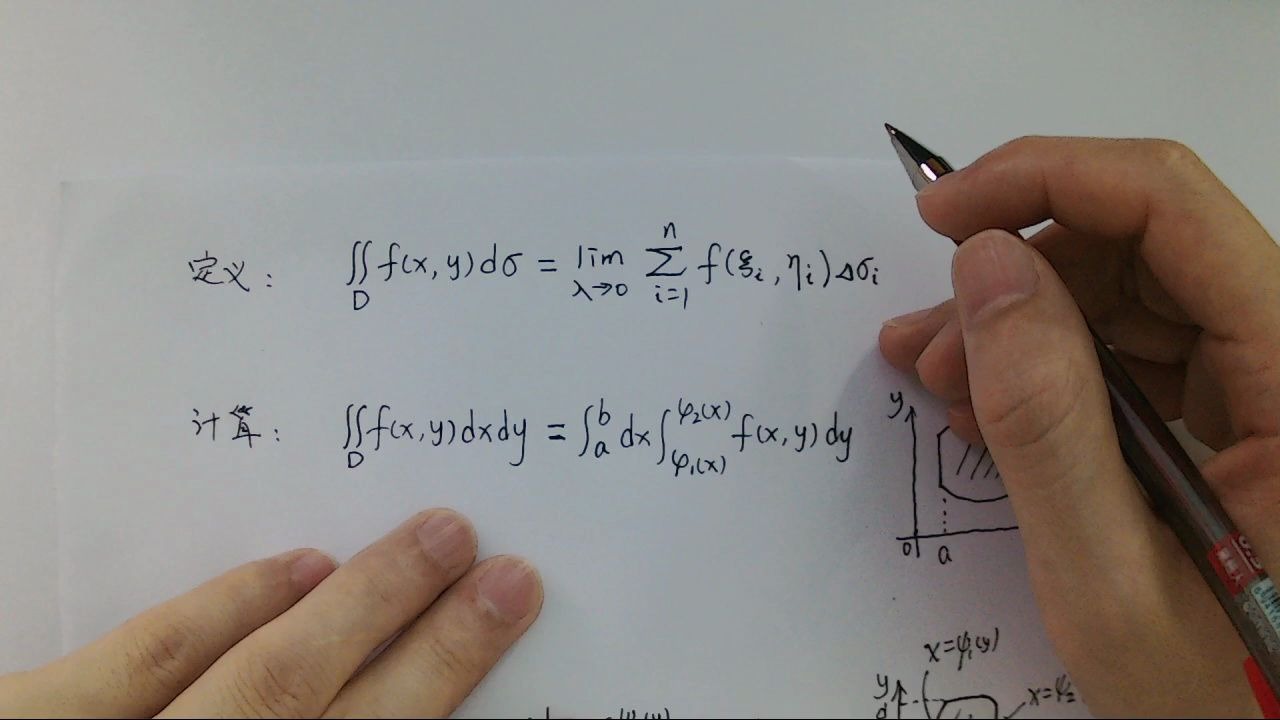 定义: ∬_D f(x,y)dσ = lim_{λ→0} ∑_{i=1}^{n} f(ξ_i, η_i)Δσ_i
计算: ∬_D f(x,y)dxdy = ∫_a^b dx∫_{φ₁(x)}^{φ₂(x)} f(x,y)dy
y
0 a
x=ψ₁(y)
y
d
x=ψ₂